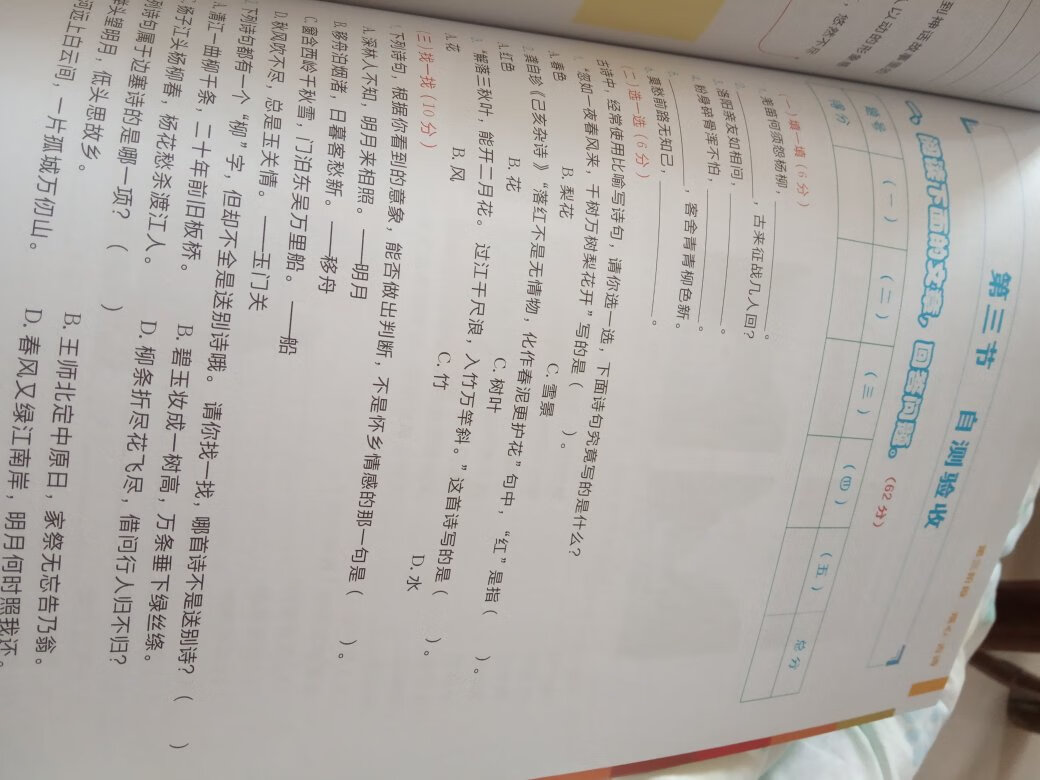 第三节 自测验收
一、阅读下面的文章,回答问题。(62分)
题号 (一) (二) (三) (四) (五) 总分
得分
(一)填一填(6分)
1. 羌笛何须怨杨柳,________。
2. ________,古来征战几人回?
3. 洛阳亲友如相问,________。
4. 粉身碎骨浑不怕,________。
5. ________,客舍青青柳色新。
6. 莫愁前路无知己,________。
(二)选一选(6分)
古诗中,经常使用比喻写诗句,请你选一选,下面诗句究竟写的是什么?
1. “忽如一夜春风来,千树万树梨花开”写的是( )。
A.春色 B.梨花 C.雪景
2.龚自珍《己亥杂诗》“落红不是无情物,化作春泥更护花”句中,“红”是指( )。
A.红色 B.花 C.树叶
3. “解落三秋叶,能开二月花。过江千尺浪,入竹万竿斜。”这首诗写的是( )。
A.花 B.风 C.竹 D.水
(三)找一找(10分)
1. 下列诗句,根据你看到的意象,能否做出判断,不是怀乡情感的那一句是( )。
A.深林人不知,明月来相照。——明月
B.移舟泊烟渚,日暮客愁新。——移舟
C.窗含西岭千秋雪,门泊东吴万里船。——船
D.秋风吹不尽,总是玉关情。——玉门关
2. 下列诗句都有一个“柳”字,但却不全是送别诗哦。请你找一找,哪首诗不是送别诗?( )
A.清江一曲柳千条,二十年前旧板桥。 B. 碧玉妆成一树高,万条垂下绿丝绦。
扬子江头杨柳春,杨花愁杀渡江人。 D. 柳条折尽花飞尽,借问行人归不归?
列诗句属于边塞诗的是哪一项?( )
头望明月,低头思故乡。 B. 王师北定中原日,家祭无忘告乃翁。
河远上白云间,一片孤城万仞山。 D. 春风又绿江南岸,明月何时照我还。